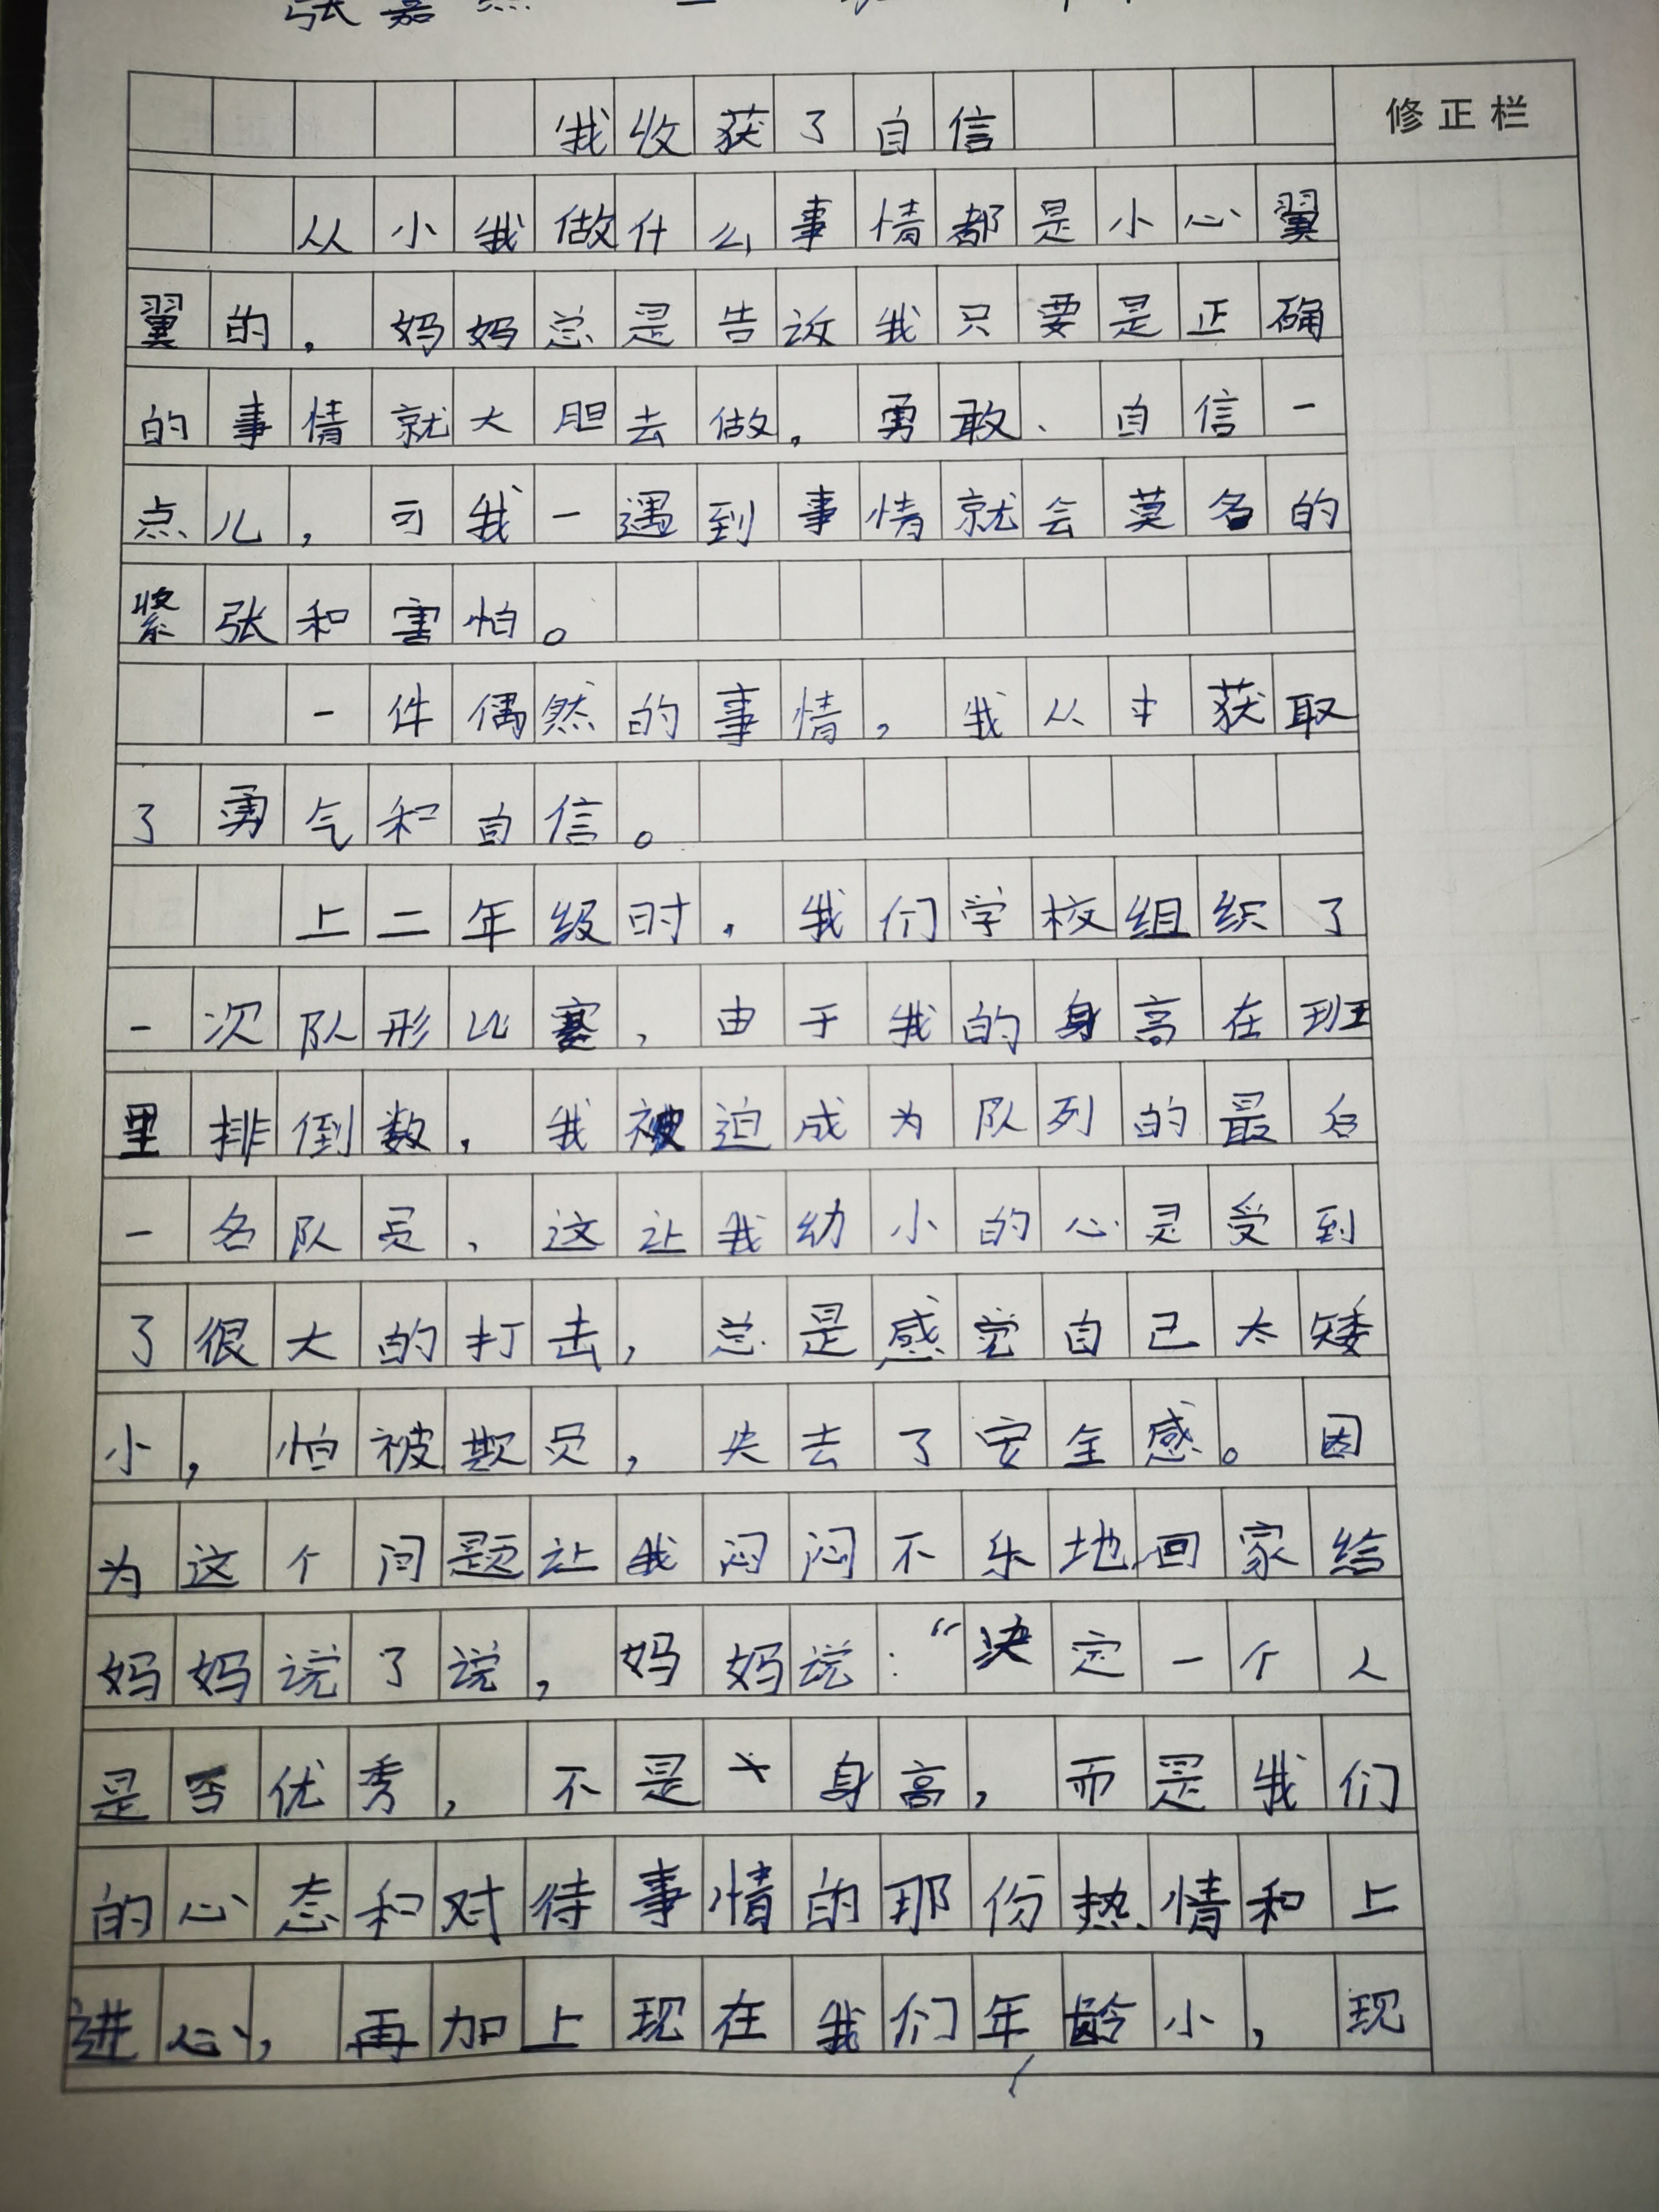 张嘉
我收获了自信
修正栏
从小我做什么事情都是小心翼
翼的，妈妈总是告诉我只要是正确
的事情就大胆去做，勇敢、自信一
点儿，可我一遇到事情就会莫名的
紧张和害怕。
一件偶然的事情，我从中获取
了勇气和自信。
上二年级时，我们学校组织了
一次队形比赛，由于我的身高在班
里排倒数，我被迫成为队列的最后
一名队员，这让我幼小的心灵受到
了很大的打击，总是感觉自己太矮
小，怕被欺负，失去了安全感。因
为这个问题让我闷闷不乐地回家给
妈妈说了说，妈妈说：“决定一个人
是否优秀，不是身高，而是我们
的心态和对待事情的那份热情和上
进心，再加上现在我们年龄小，现